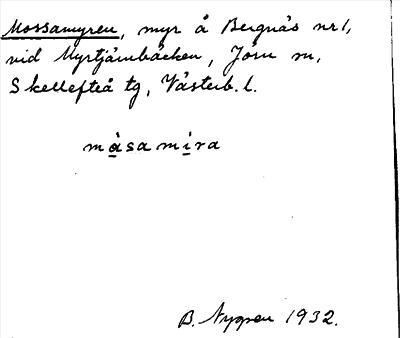 Mossamyren, myr å Bergnäs nr 1,
vid Myrtjärnbäcken, Jörn sn,
Skellefteå tg, Västerb. l.
måsamira
B. Nygren 1932.